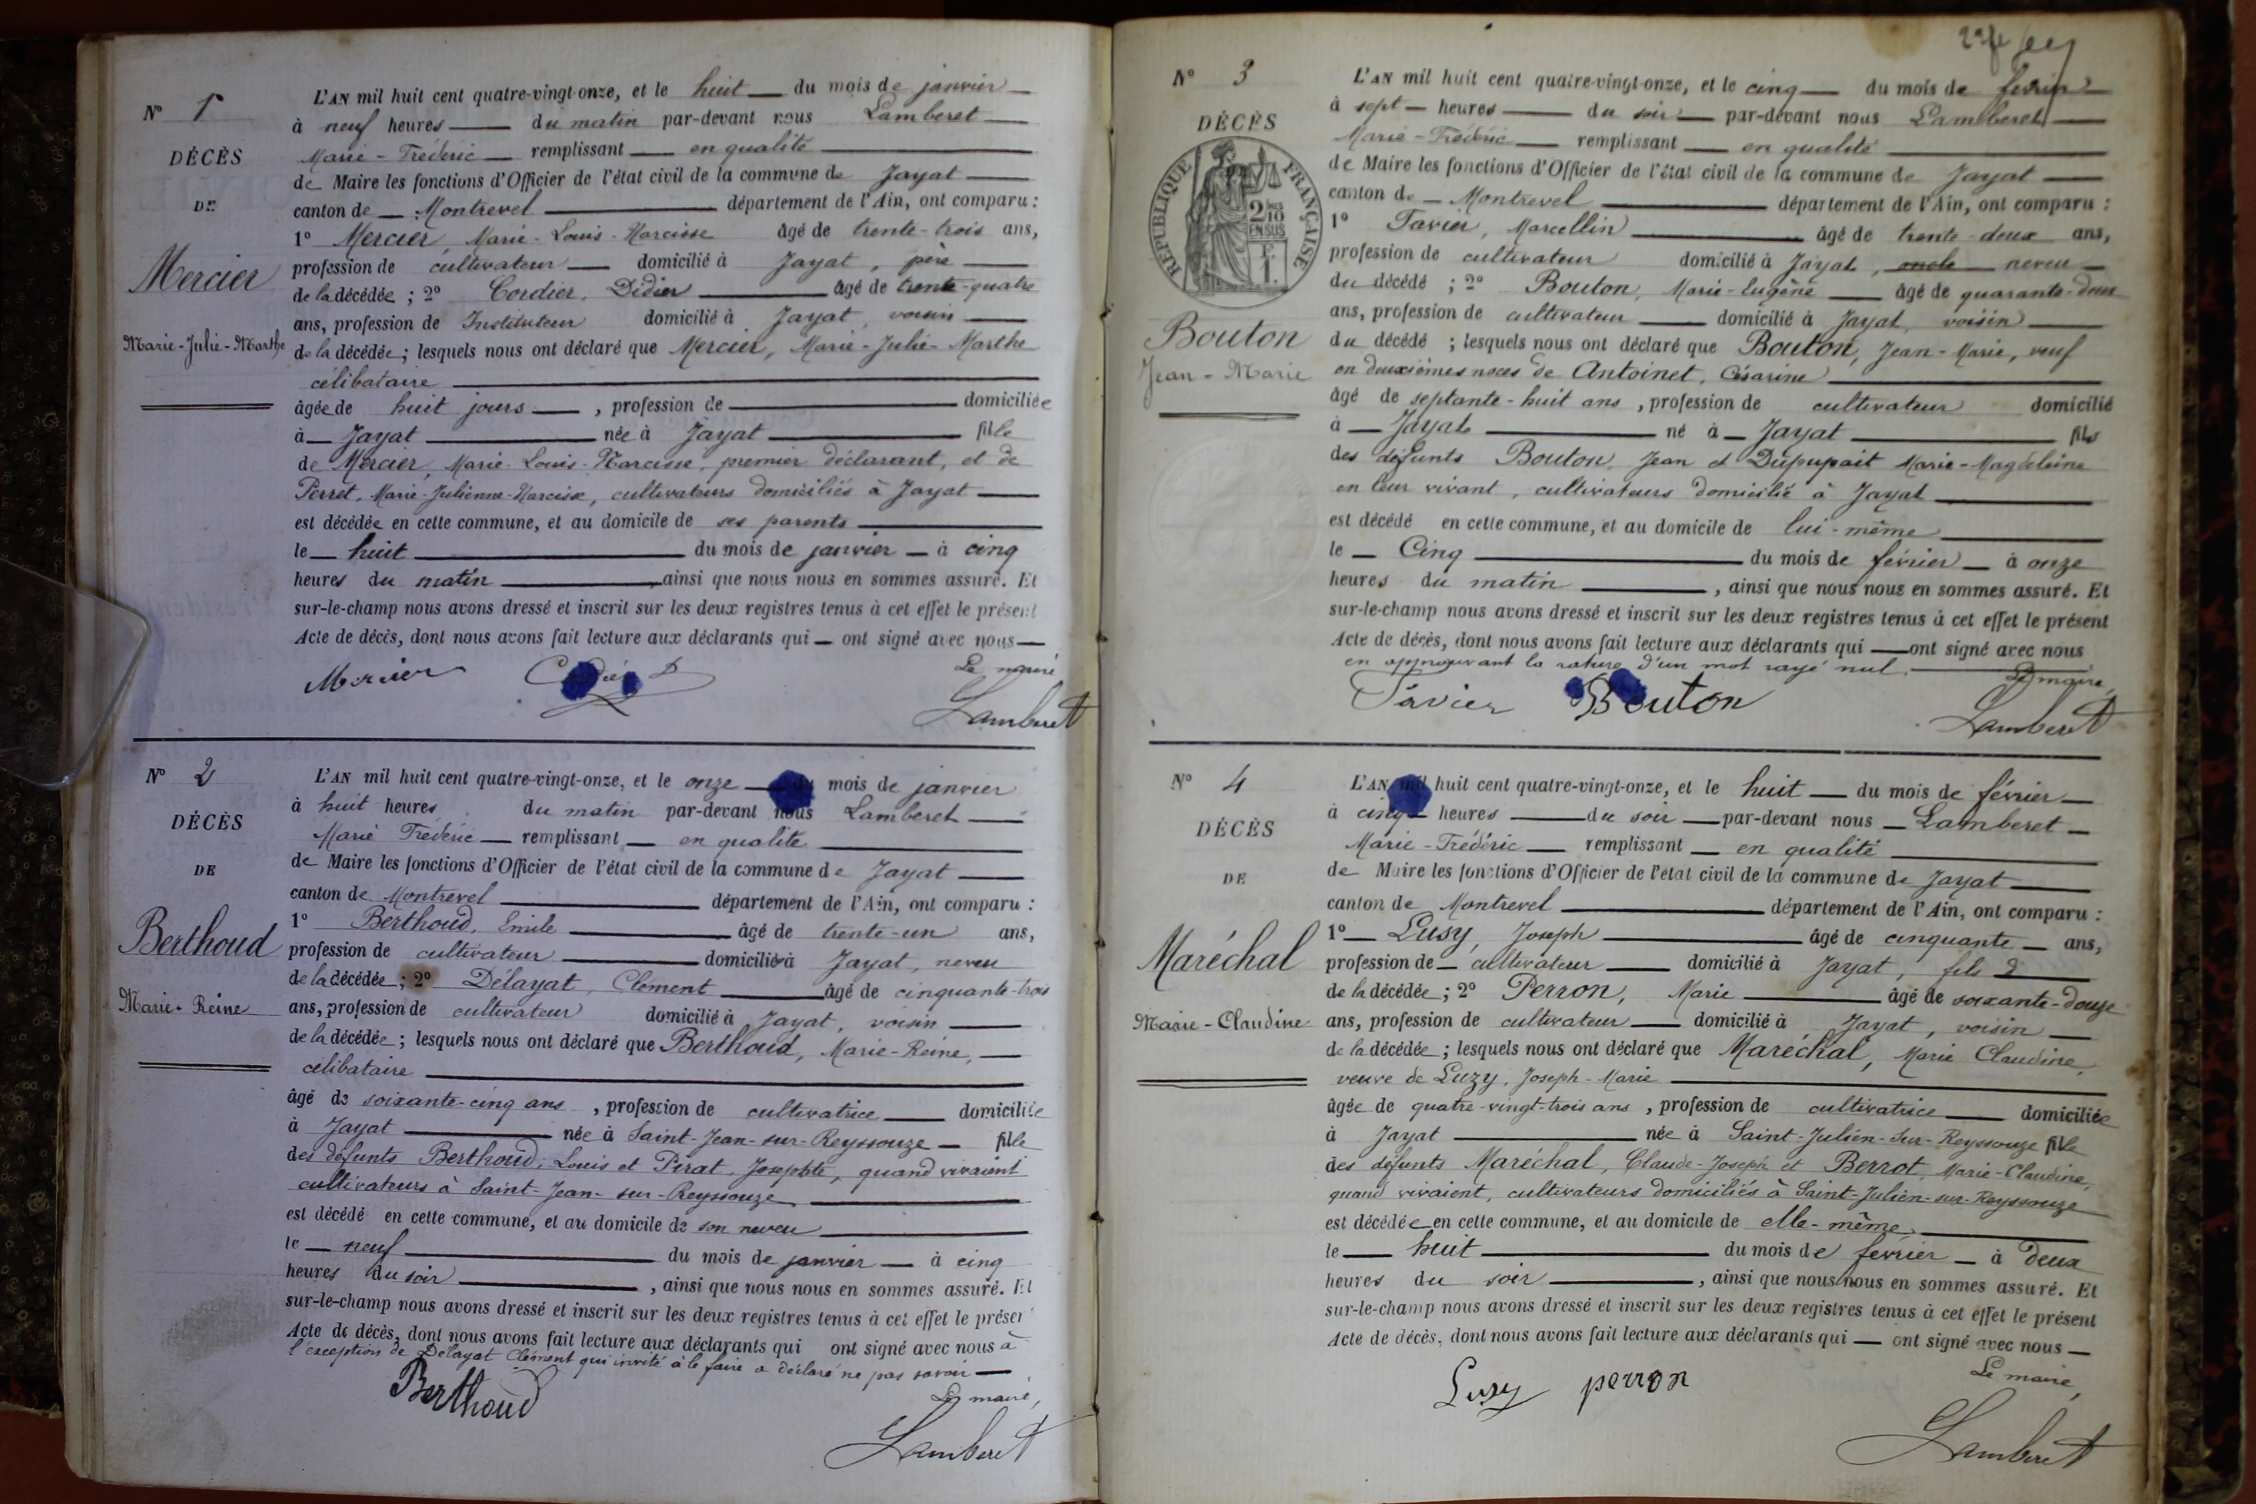 N° 1
DÉCÈS
DE
Mercier
Marie-Julie-Marthe
L'AN mil huit cent quatre-vingt-onze, et le huit du mois de janvier
à neuf heures du matin par-devant nous Lamberet
Marie-Frédéric remplissant en qualité
de Maire les fonctions d'Officier de l'état civil de la commune de Jayat
canton de Montrevel département de l'Ain, ont comparu :
1° Mercier, Marie-Louis-Narcisse âgé de trente-trois ans,
profession de cultivateur domicilié à Jayat, père
de la décédée ; 2° Cordier, Didier âgé de trente-quatre
ans, profession de Instituteur domicilié à Jayat, voisin
de la décédée ; lesquels nous ont déclaré que Mercier, Marie-Julie-Marthe
célibataire
âgée de huit jours , profession de domiciliée
à Jayat née à Jayat fille
de Mercier, Marie-Louis-Narcisse, premier déclarant, et de
Perret, Marie-Julienne-Narcise, cultivateurs domiciliés à Jayat
est décédée en cette commune, et au domicile de ses parents
le huit du mois de janvier à cinq
heures du matin , ainsi que nous nous en sommes assuré. Et
sur-le-champ nous avons dressé et inscrit sur les deux registres tenus à cet effet le présent
Acte de décès, dont nous avons fait lecture aux déclarants qui ont signé avec nous
Le maire
Mercier
Lamberet
N° 2
DÉCÈS
DE
Berthoud
Marie-Reine
L'AN mil huit cent quatre-vingt-onze, et le onze du mois de janvier
à huit heures du matin par-devant nous Lamberet
Marie Frédéric remplissant en qualité
de Maire les fonctions d'Officier de l'état civil de la commune de Jayat
canton de Montrevel département de l'Ain, ont comparu :
1° Berthoud, Emile âgé de trente-un ans,
profession de cultivateur domicilié à Jayat, neveu
de la décédée ; 2° Délayat, Clément âgé de cinquante-trois
ans, profession de cultivateur domicilié à Jayat, voisin
de la décédée ; lesquels nous ont déclaré que Berthoud, Marie-Reine,
célibataire
âgé de soixante-cinq ans , profession de cultivatrice domiciliée
à Jayat née à Saint-Jean-sur-Reyssouze fille
des défunts Berthoud, Louis et Pirat, Josephte, quand vivaient
cultivateurs à Saint-Jean-sur-Reyssouze
est décédé en cette commune, et au domicile de son neveu
le neuf du mois de janvier à cinq
heures du soir , ainsi que nous nous en sommes assuré. Et
sur-le-champ nous avons dressé et inscrit sur les deux registres tenus à cet effet le présent
Acte de décès, dont nous avons fait lecture aux déclarants qui ont signé avec nous à
l'exception de Délayat Clément qui invité à le faire a déclaré ne pas savoir
Le maire,
Berthoud
Lamberet
N° 3
DÉCÈS
RÉPUBLIQUE FRANÇAISE
2 DES
10
EN SUS
F.
1.
Bouton
Jean-Marie
L'AN mil huit cent quatre-vingt-onze, et le cinq du mois de février
à sept heures du soir par-devant nous Lamberet
Marie-Frédéric remplissant en qualité
de Maire les fonctions d'Officier de l'état civil de la commune de Jayat
canton de Montrevel département de l'Ain, ont comparu :
1° Favier, Marcellin âgé de trente-deux ans,
profession de cultivateur domicilié à Jayat, oncle neveu
du décédé ; 2° Bouton, Marie-Eugène âgé de quarante-deux
ans, profession de cultivateur domicilié à Jayat, voisin
du décédé ; lesquels nous ont déclaré que Bouton, Jean-Marie, veuf
en deuxièmes noces de Antoinet, Césarine
âgé de septante-huit ans , profession de cultivateur domicilié
à Jayat né à Jayat fils
des défunts Bouton, Jean et Dupupait Marie-Magdeleine
en leur vivant, cultivateurs domicilié à Jayat
est décédé en cette commune, et au domicile de lui-même
le Cinq du mois de février à onze
heures du matin , ainsi que nous nous en sommes assuré. Et
sur-le-champ nous avons dressé et inscrit sur les deux registres tenus à cet effet le présent
Acte de décès, dont nous avons fait lecture aux déclarants qui ont signé avec nous
en approuvant la rature d'un mot rayé nul.
Le maire,
Favier Bouton
Lamberet
N° 4
DÉCÈS
DE
Maréchal
Marie-Claudine
L'AN mil huit cent quatre-vingt-onze, et le huit du mois de février
à cinq heures du soir par-devant nous Lamberet
Marie-Frédéric remplissant en qualité
de Maire les fonctions d'Officier de l'état civil de la commune de Jayat
canton de Montrevel département de l'Ain, ont comparu :
1° Lusy, Joseph âgé de cinquante ans,
profession de cultivateur domicilié à Jayat, fils
de la décédée ; 2° Perron, Marie âgé de soixante-douze
ans, profession de cultivateur domicilié à Jayat, voisin
de la décédée ; lesquels nous ont déclaré que Maréchal, Marie Claudine,
veuve de Luzy, Joseph-Marie
âgée de quatre-vingt-trois ans , profession de cultivatrice domiciliée
à Jayat née à Saint-Julien-sur-Reyssouze fille
des défunts Maréchal, Claude-Joseph et Berrot, Marie-Claudine,
quand vivaient, cultivateurs domiciliés à Saint-Julien-sur-Reyssouze
est décédée en cette commune, et au domicile de elle-même
le huit du mois de février à deux
heures du soir , ainsi que nous nous en sommes assuré. Et
sur-le-champ nous avons dressé et inscrit sur les deux registres tenus à cet effet le présent
Acte de décès, dont nous avons fait lecture aux déclarants qui ont signé avec nous
Le maire,
Lusy perron
Lamberet